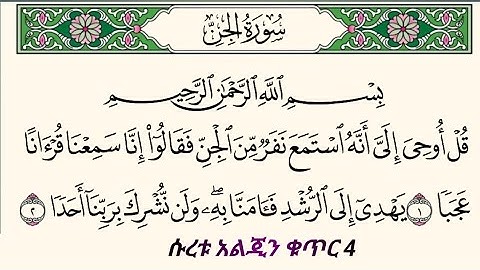 سُورَةُ الجِنِّ
بِسْمِ ٱللَّهِ ٱلرَّحْمَٰنِ ٱلرَّحِيمِ
قُلْ أُوحِىَ إِلَىَّ أَنَّهُ ٱسْتَمَعَ نَفَرٌ مِّنَ ٱلْجِنِّ فَقَالُوٓا۟ إِنَّا سَمِعْنَا قُرْءَانًا
عَجَبًا ١ يَهْدِىٓ إِلَى ٱلرُّشْدِ فَـَٔامَنَّا بِهِۦ ۖ وَلَن نُّشْرِكَ بِرَبِّنَآ أَحَدًا ٢
ሱረቱ አልጂን ቁጥር 4